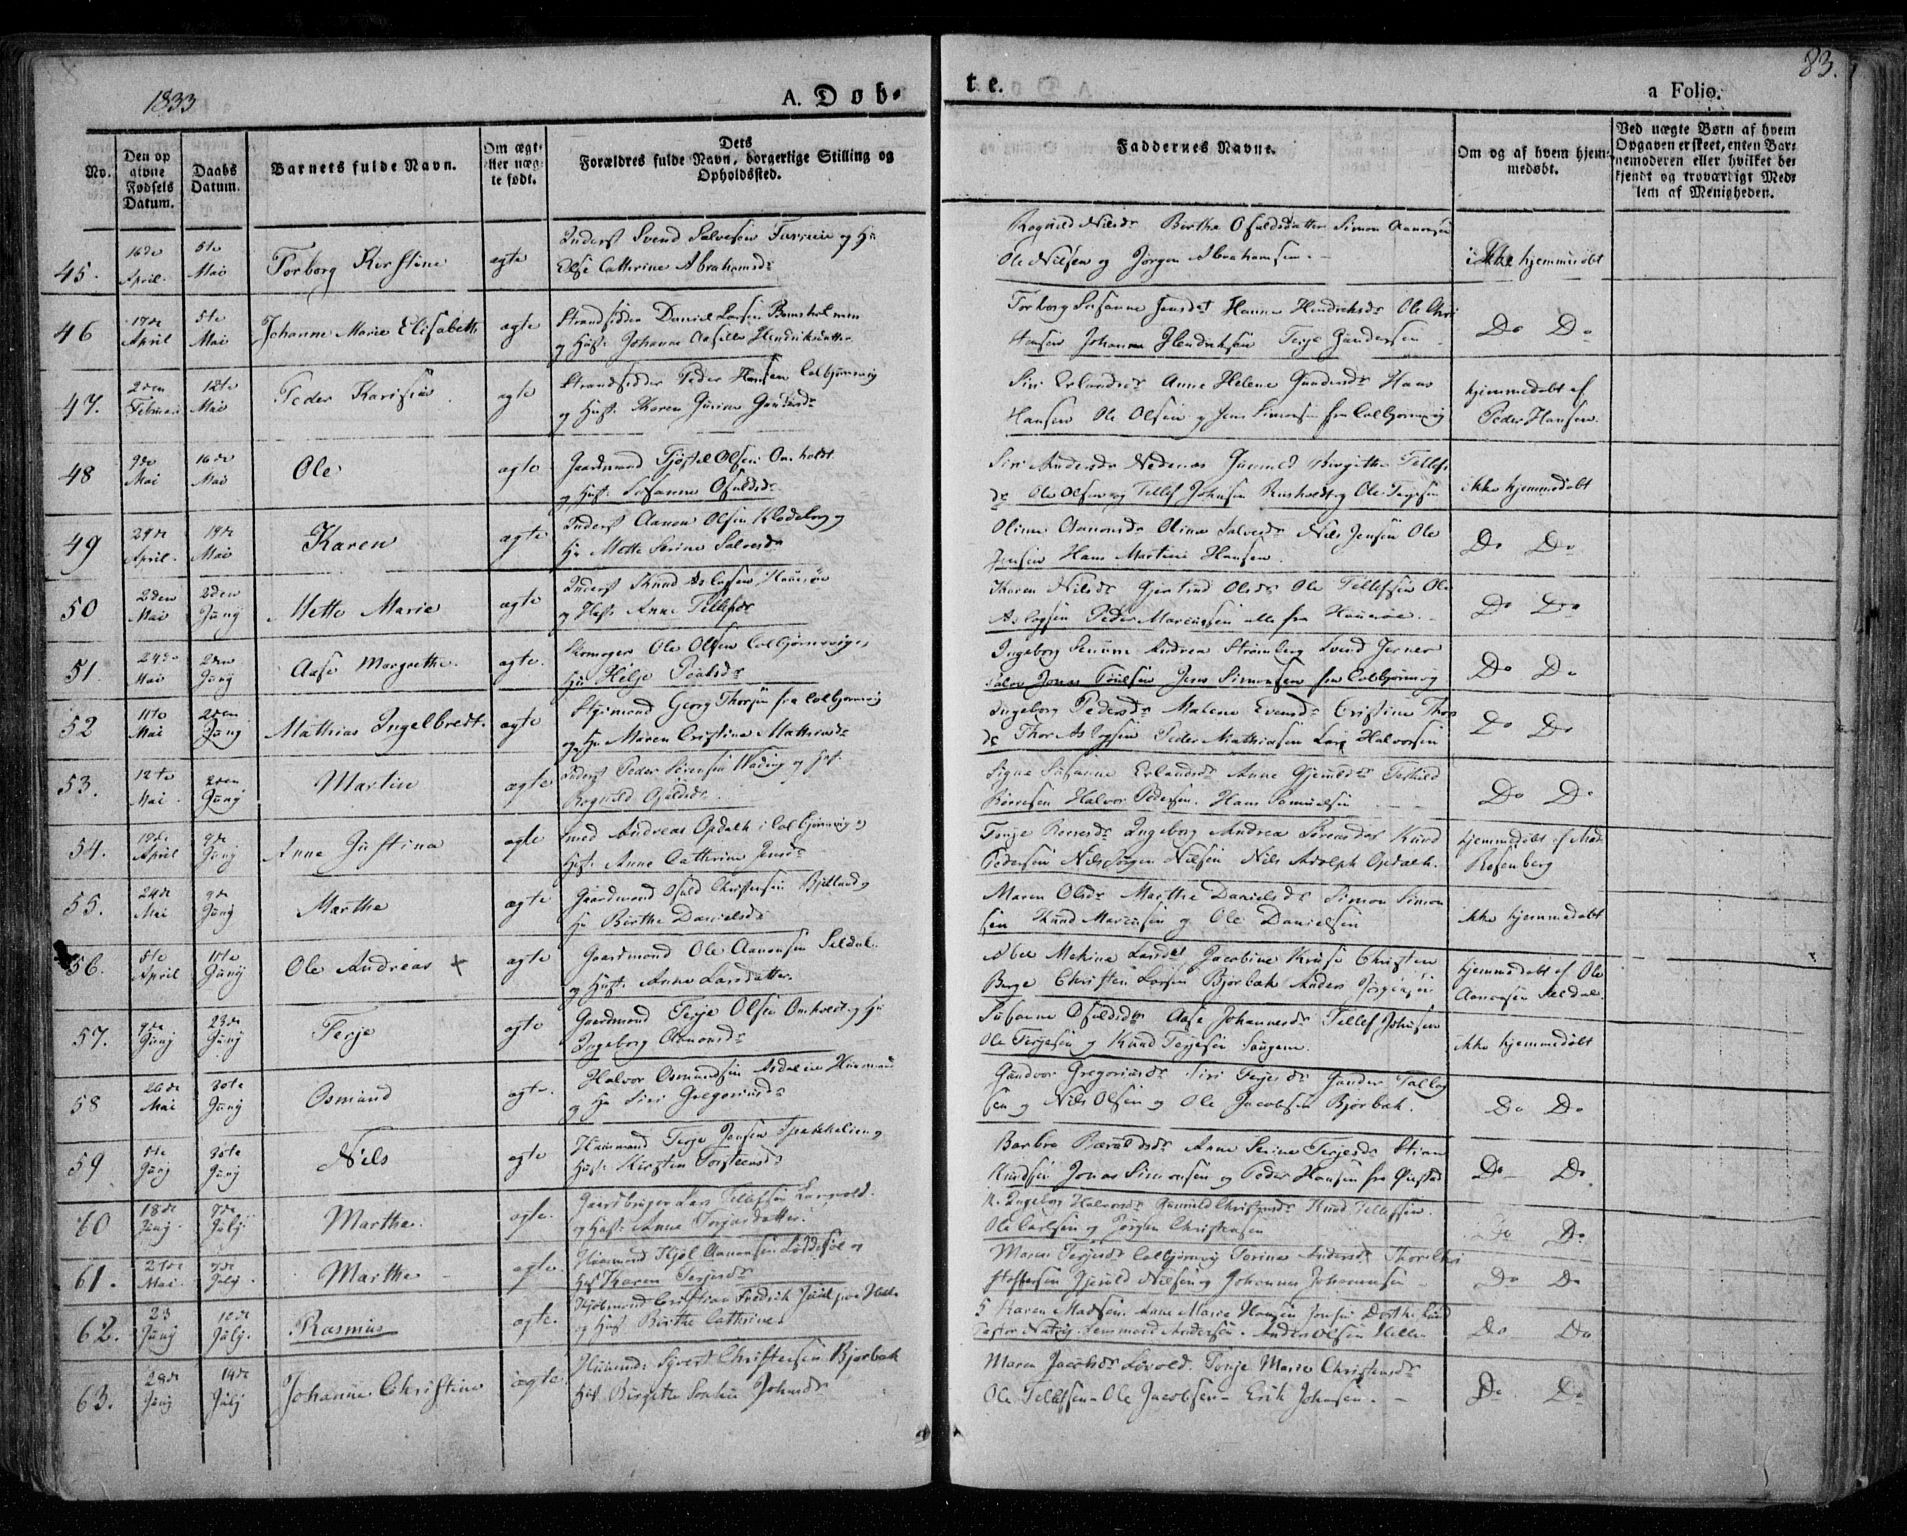 1833
A. Døb-
te.
a Folio.
83.
No.
Den op
givne
Fødsels
Datum.
Daabs
Datum.
Barnets fulde Navn.
Om ægt-
eller næg-
te født.
Dets
Forældres fulde Navn, borgerlige Stilling og
Opholdssted.
Faddernes Navne.
Om og af hvem hjem-
medøbt.
Ved uægte Børn af hvem
Opgaven er skeet, enten Bar-
nemoderen eller hvilket be-
kjendt og troværdigt Med-
lem af Menigheden.
45.
16de
April.
5te
Mai
Torborg Kirstine
ægte
Inderst Svend Salvesen og Hu
Else Cathrine Abrahamsdr
Ragnild Nilsdr Birthe Osuldsdatter Simon Aanonsen
Ole Nilsen og Jørgen Abrahamsen.
ikke hjemmedøbt
46
17de
April
5te
Mai
Johanne Marie Elisabeth
ægte
Strandsidder Daniel Larsen Bornholmm
og Hust. Johanne Hendriksdatter
Torborg Susanne Jensdt Hanne Hendriksdr Ole Chri
stensen Johannes Hendriksen Terje Gundersen
Do Do
47.
2den
Februar
12te
Mai
Peder
ægte
Strandsidder Peder Hansen Colbjørnsvig
og Hust. Karen
Siri Erlandsdr Anne Helene Gundersdr Hans
Hansen Ole Olsen og Jens Simonsen fra Colbjørnsvig
hjemmedøbt af
Peder Hansen.
48
9de
Mai
16de
Mai
Ole
ægte
Gaardmand Tjøstel Olsen Omholdt
og Hust. Susanne Osuldsdr
Siri Andersdr Nedenæs Gunnild Birgitte Tellefs
dr Ole Olsen og Tellef Johnsen og Ole Terjesen
ikke hjemmedøbt
49
29de
April.
19de
Mai
Karen
ægte
Inderst Aanon Olsen Klodeborg
Hu Mette Serine Salvesdr
Oline Aanonsdr Oline Salvesdr Nils Jensen Ole
Jensen Hans Martin Hansen.
Do Do
50
2den
Mai
2den
Juny
Mette Marie
ægte
Inderst Knud Aslagsen
og Hust. Anne Tellefsdr
Karen Nilsdr Gjertrud Olsdr Ole Tellefsen Ole
Aslagsen Peder Marcussen alle fra
Do Do
51.
24de
Mai
2den
Juny
Aase Margrethe.
ægte.
Skomager Ole Olsen Colbjørnsvig
Hu Helje
Ingeborg Andrea Strømberg Svend
Jonas Jens Simonsen fra Colbjørnsvig
Do Do
52
11te
Mai
2den
Juny
Mathias Ingelbredt.
ægte
Styrmand Georg Thorsen fra Colbjørnsvig
og Hu Maren Cristine Mathiasdr
Ingeborg Pedersdr Malene Evensdr Cristine Thors
dr Thor Aslagsen Peder Mathiasen Lars Halvorsen
Do Do
53.
12te
Mai.
2den
Juny
Martin
ægte
Inderst Peder Sørensen og Hust.
Ragnild
Signe Susanne Erlandsdr Anne
Børresen Halvor Pedersen. Hans Samuelsen
Do Do
54.
19de
April
9de
Juny
Anne Justina
ægte
Smed Andreas Opdalh i Colbjørnsvig og
Hust. Anne Cathrine Jensdr
Tonje Ingeborg Andrea Knud
Pedersen Nils Jørgen Nilsen Nils Adolph Opdalh.
hjemmedøbt af Mad
Rosenberg
55.
24de
Mai
9de
Juny
Marthe
ægte
Gaardmand Osuld Christensen
Hu Birthe Danielsdr
Maren Olsdr Marthe Danielsdr Simon Simon
sen Knud Marcusen og Ole Danielsen
ikke hjemmedøbt
56.
5te
April
11te
Juny
Ole Andreas +
ægte
Gaardmand Ole Aanonsen Seldal.
og Hust. Anne Larsdatter.
Jacobine Kruse Christen
Berge Christen Larsen Bjorbek Anders Jørgensen
hjemmedøbt af Ole
Aanonsen Seldal.
57.
9de
Juny
23de
Juny
Terje
ægte
Gaardmand Terje Olsen og Hu
Ingeborg Osmonsdr
Susanne Osuldsdr Aase Johannesdr Tellef Johnsen
Ole Terjesen og Knud Terjesen Songene.
ikke hjemmedøbt
58
26de
Mai
30te
Juny
Osmund
ægte.
Halvor Osmundsen Asdalen Huusmand
og Hu Siri Gregoriusdr
Gundvor Gregoriusdr Siri Terjesdr Gunder
sen og Nils Olsen og Ole Jacobsen Bjorbek.
Do Do
59
5te
Juny
30te
Juny
Nils
ægte
Huusmand Terje Jensen
Hust. Kirsten
Barbro Anne Serine Terjesdr Stian
Knudsen Jonas Simonsen og Peder Hansen fra
Do Do.
60
18de
Juny
7de
July
Marthe.
ægte.
Gaardbruger Lars Tellefsen
og Hust. Anne Torjusdatter.
Ingeborg Halvorsdr Gunnild Knud Tellefsen.
Ole Carlsen og Jørgen Christensen
Do Do
61.
27de
Mai
7de
July
Marthe
ægte.
Huusmand Kjøl Aanonsen Løddesøl og
Hust Karen Terjesdr
Maren Terjesdr Colbjørnsvig Terine Andersdr Thore Chri
stoffersen Gjeruld Nilsen og Johannes Johannesen
Do Do
62.
23
Juny
10de
July.
Rasmus
ægte.
Cristian Fredrik Juul
og Hust Birthe Cathrine.
5 Karen Madsen. Anne Marie Hansen
Andersen. Anders Olsen
Do Do
63.
28de
Juny
14de
July
Johanne Christine
ægte.
Huusmd. Sjvert Christensen Bjorbek
Hust. Birgitte Sophie Johnsdr
Maren Jacobsdr Løvold. Tonje Marie Christensdr
Ole Tellefsen - Ole Jacobsen - Erik Johnsen. -
Do. Do